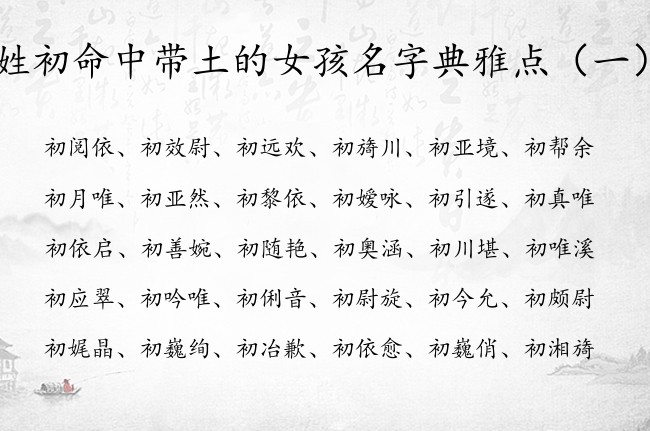 姓初命中带土的女孩名字典雅点（一）
初阅依、初效尉、初远欢、初旖川、初亚境、初帮余
初月唯、初亚然、初黎依、初嫒咏、初引遂、初真唯
初依启、初善婉、初随艳、初奥涵、初川堪、初唯溪
初应翠、初吟唯、初俐音、初尉旋、初今允、初颇尉
初娓晶、初巍绚、初冶歉、初依愈、初巍俏、初湘旖